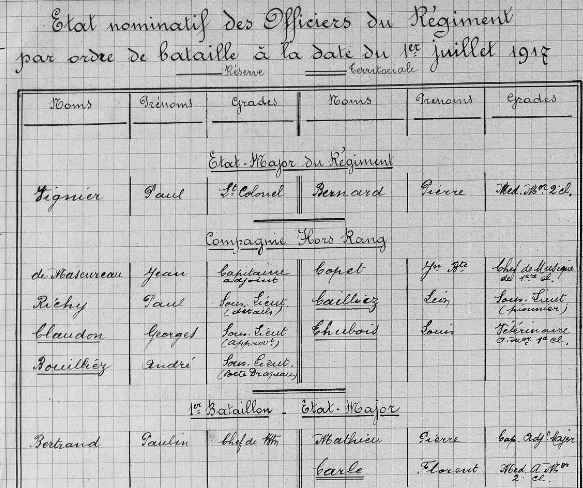 Etat nominatif des Officiers du Régiment
par ordre de bataille à la date du 1er juillet 1917
Réserve Territoriale
Noms Prénoms Grades Noms Prénoms Grades
Etat-Major du Régiment
Vignier Paul Lt Colonel Bernard Pierre Med. Mor 2e cl.
Compagnie Hors Rang
de Masureau Jean Capitaine adjoint Copet Jn Bte Chef de Musique de 1ère cl.
Richy Paul Sous. Lieut (détails) Cailliez Léon Sous. Lieut (pionnier)
Claudon Georges Sous. Lieut (approvt) Thubois Louis Vétérinaire 1e cl.
Bouilliez André Sous. Lieut. (Porte Drapeau)
1er Bataillon - Etat-Major
Bertrand Paulin Chef de Btn Mathieu Pierre Cap. Adjt Major
Carle Florent Med. A. Mor 2e cl.